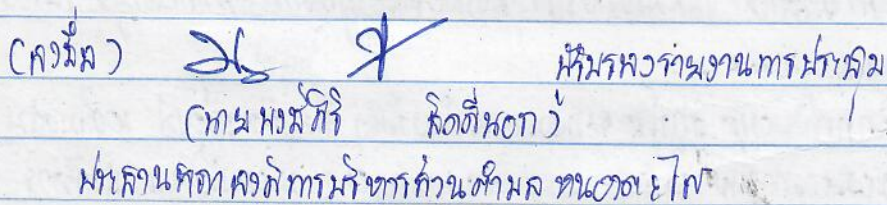 (ลงชื่อ) ผู้รับรองรายงานการประชุม
(นายพงษ์ศิริ)
ประธานสภาองค์การบริหารส่วนตำบล หนองตะไก้